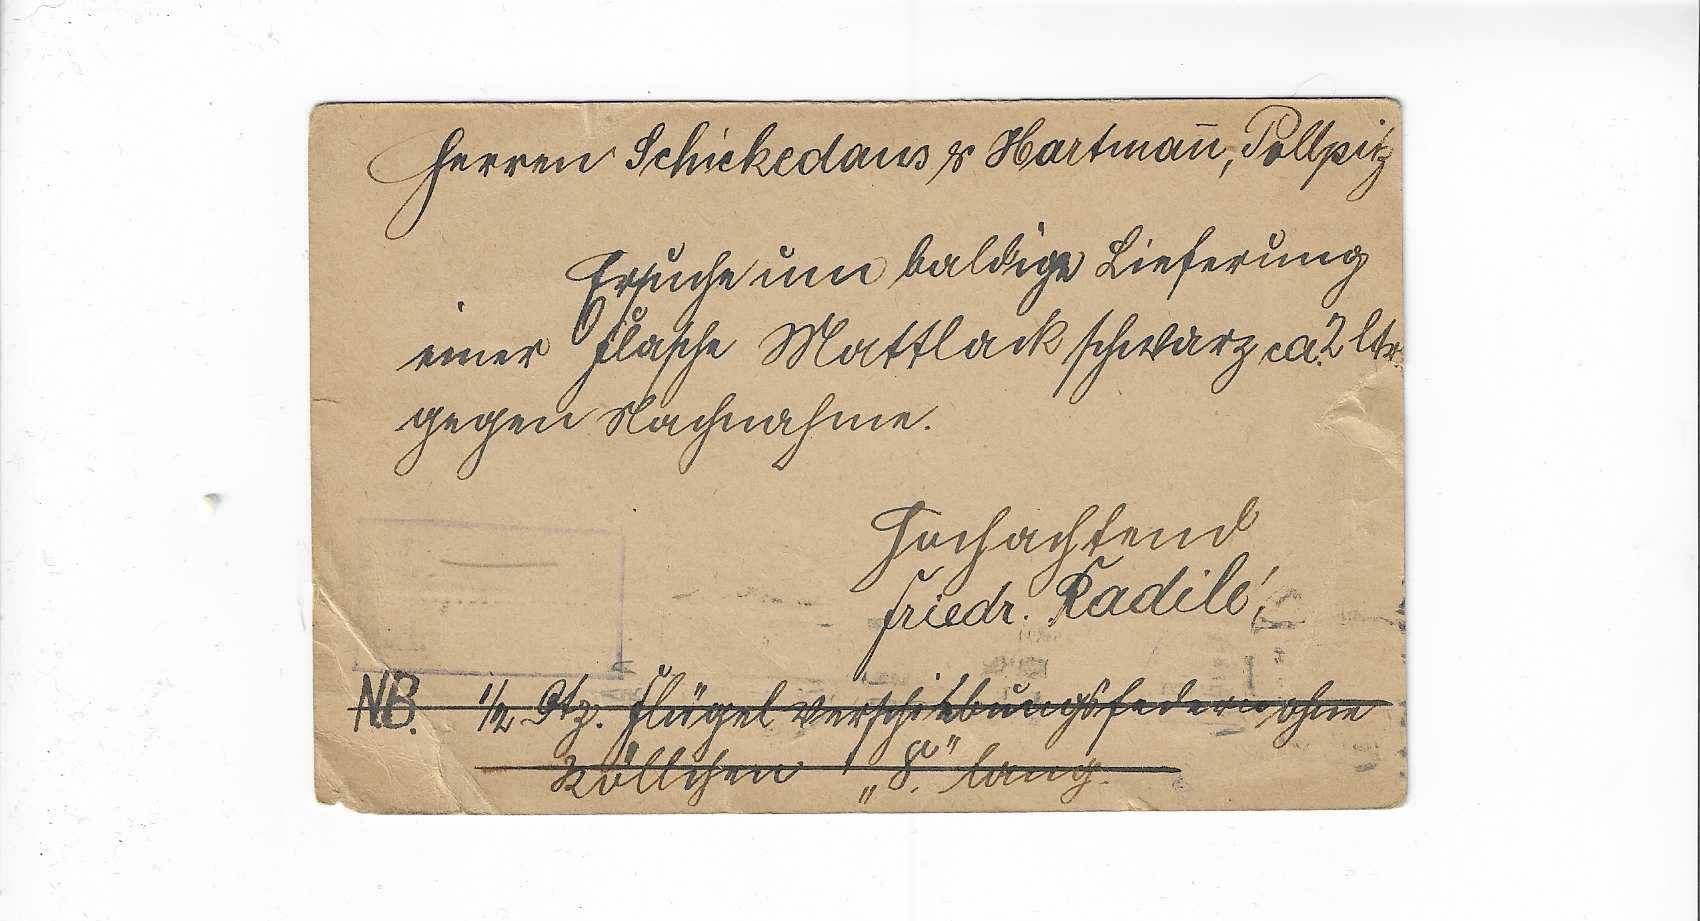 Herren Schickedans & Hartmañ, Pollpitz
Ersuche um baldige Lieferung
einer Flasche Mattlack schwarz ca. 2 ltr.
gegen Nachnahme.
Hochachtend
Friedr. Kadilé,
NB. 1/2 Dtz. Flügel verschiebungsfedern ohne
Röllchen „8." lang.